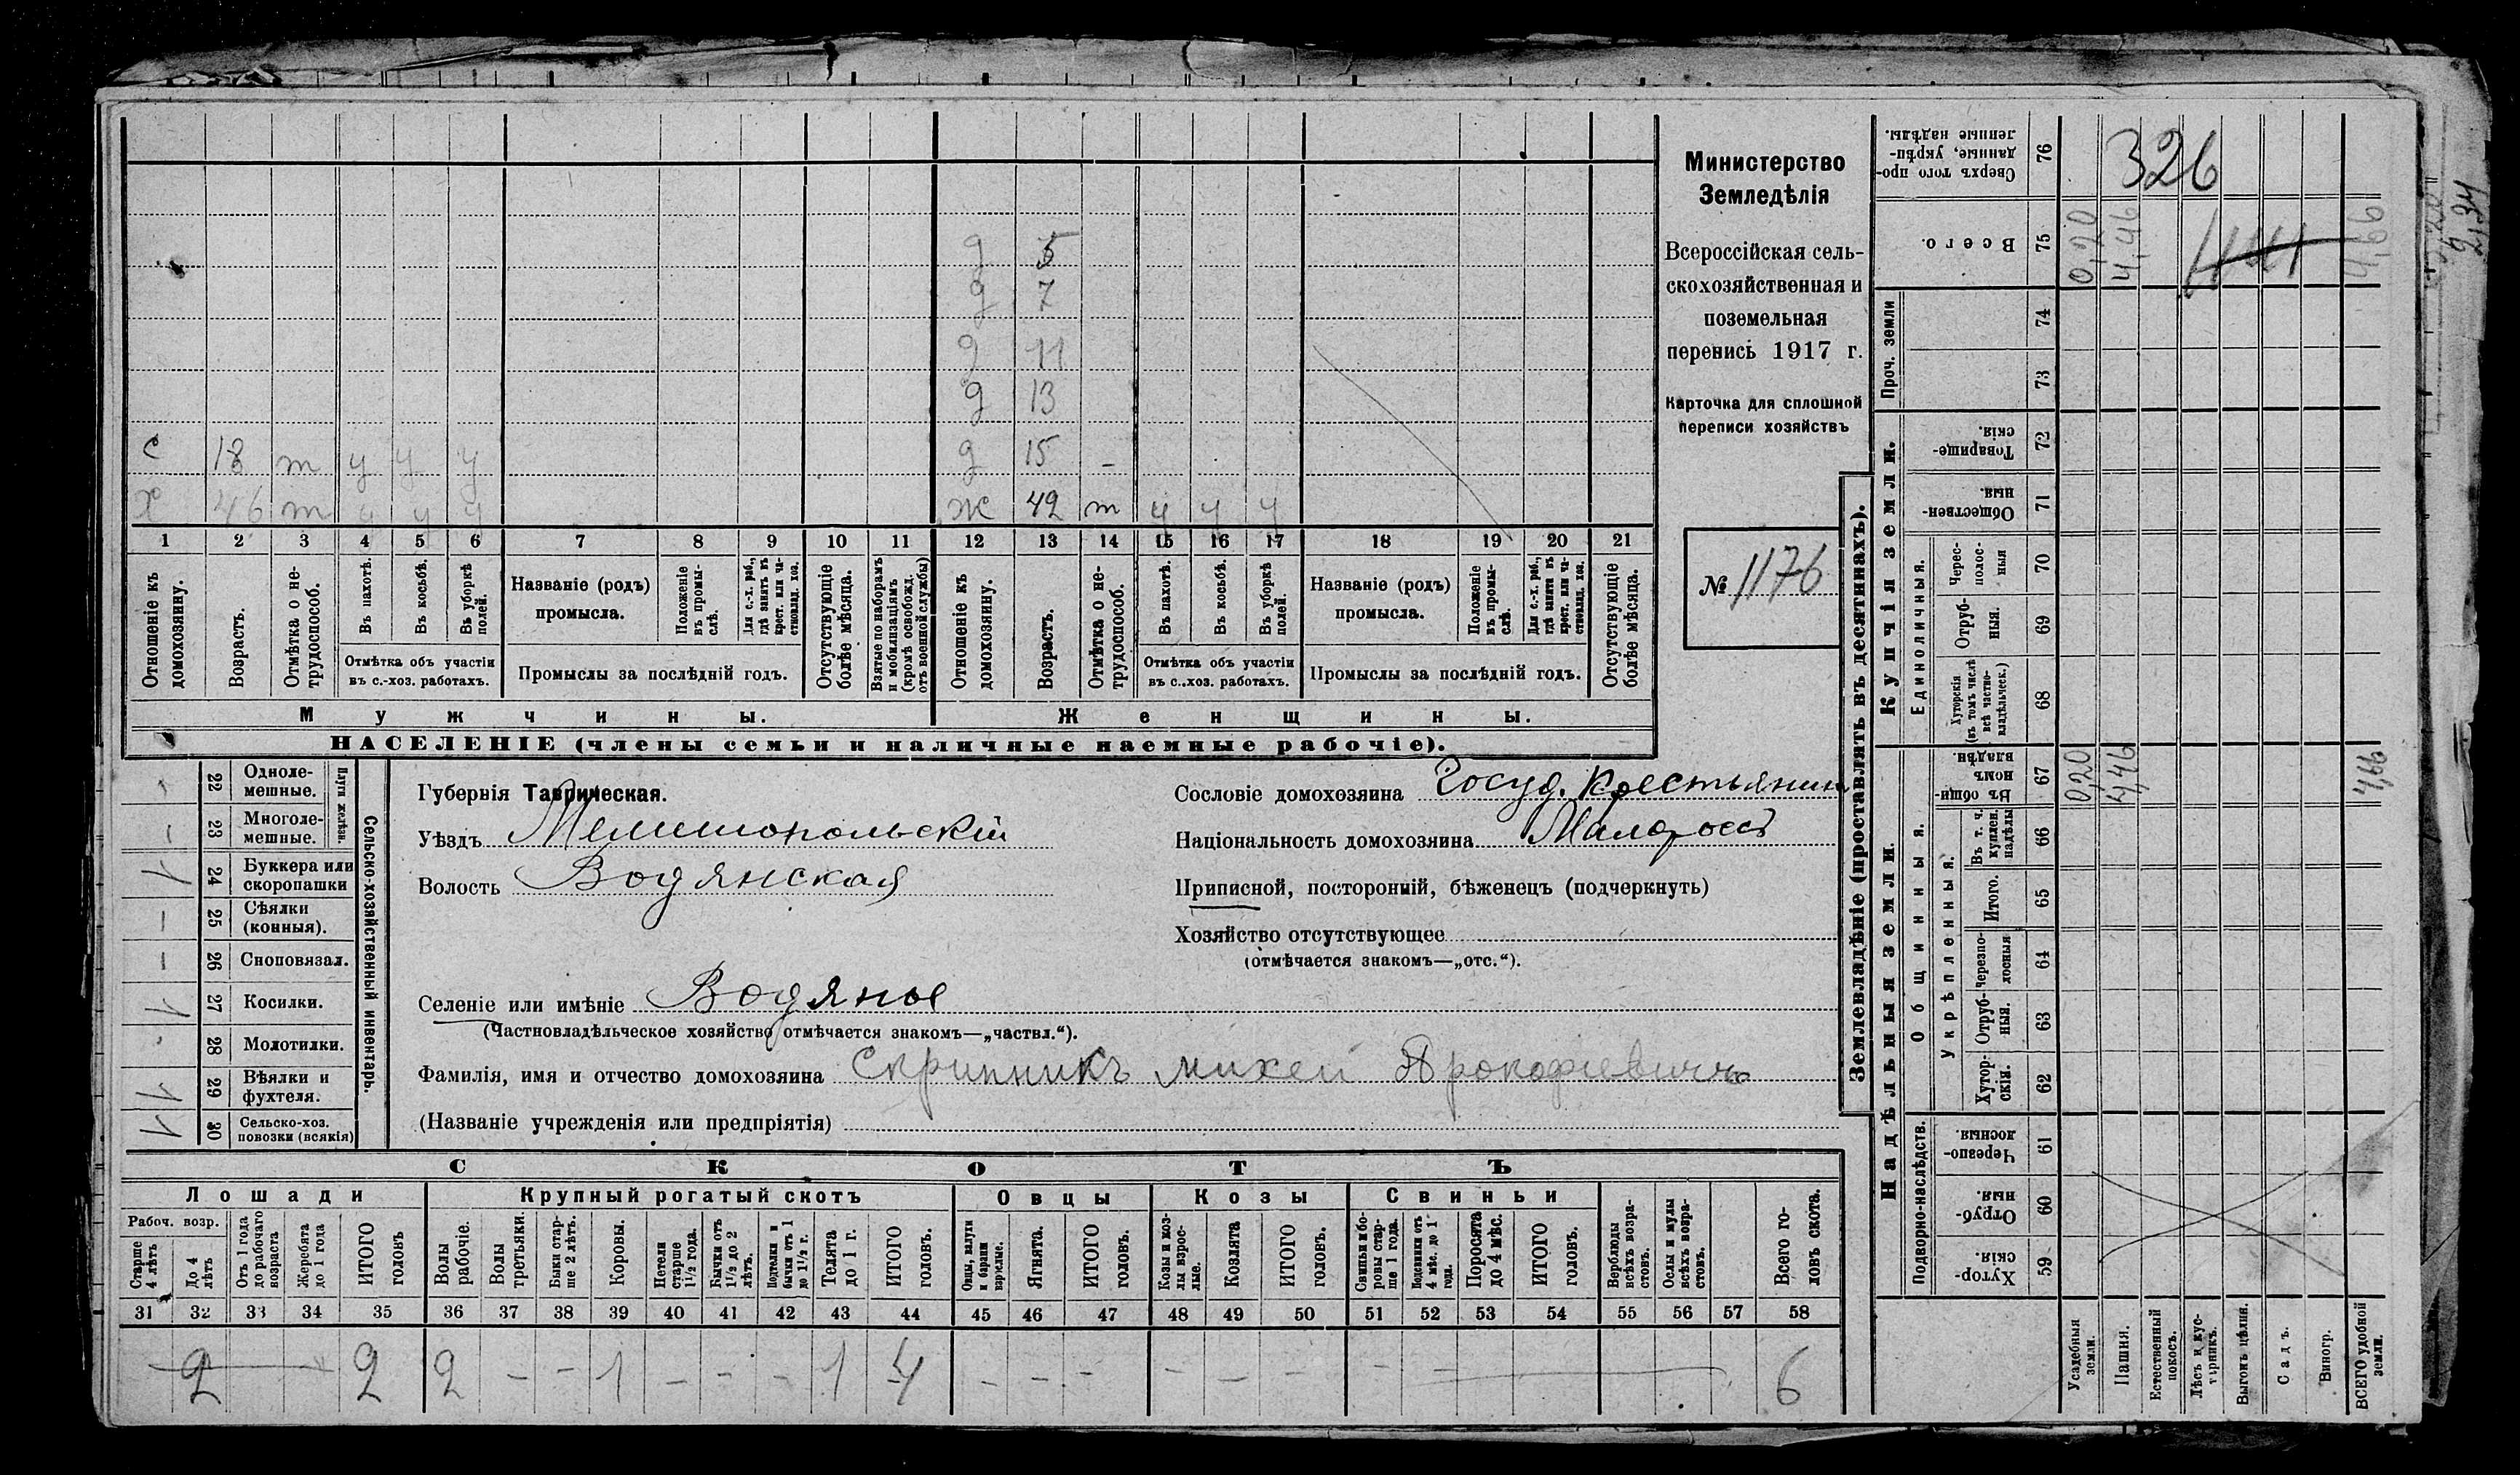 Министерство
Земледѣлія
Всероссійская сель-
скохозяйственная и
поземельная
перепись 1917 г.
Карточка для сплошной
переписи хозяйствъ
№ 1176
д 5
д 7
д 11
д 13
с 18 т у у у д 15 -
х 46 т у у у ж 42 т у у у
1 2 3 4 5 6 7 8 9 10 11 12 13 14 15 16 17 18 19 20 21
Отношеніе къ домохозяину.
Возрастъ.
Отмѣтка о не-трудоспособ.
Въ пахотѣ.
Въ косьбѣ.
Въ уборкѣ полей.
Отмѣтка объ участіи
въ с.-хоз. работахъ.
Названіе (родъ)
промысла.
Положеніе въ промы-слѣ.
Для с.-х. раб., гдѣ занятъ въ крест. или ча-стновлад. хоз.
Промыслы за послѣдній годъ.
Отсутствующіе болѣе мѣсяца.
Взятые по наборамъ и мобилизаціямъ (кромѣ освобожд. отъ военной службы)
Отношеніе къ домохозяину.
Возрастъ.
Отмѣтка о не-трудоспособ.
Въ пахотѣ.
Въ косьбѣ.
Въ уборкѣ полей.
Отмѣтка объ участіи
въ с.-хоз. работахъ.
Названіе (родъ)
промысла.
Положеніе въ промы-слѣ.
Для с.-х. раб., гдѣ занята въ крест. или ча-стновлад. хоз.
Промыслы за послѣдній годъ.
Отсутствующіе болѣе мѣсяца.
Мужчины. Женщины.
НАСЕЛЕНІЕ (члены семьи и наличные наемные рабочіе).
Сельско-хозяйственный инвентарь.
Плуги желѣзн.
- 22 Одноле-мешные.
- 23 Многоле-мешные.
1 24 Буккера или скоропашки
- 25 Сѣялки (конныя).
- 26 Сноповязал.
1 27 Косилки.
- 28 Молотилки.
1 29 Вѣялки и фухтеля.
1 30 Сельско-хоз. повозки (всякія)
Губернія Таврическая.
Уѣздъ Мелитопольскій
Волость Водянская
Селеніе или имѣніе Водяное
(Частновладѣльческое хозяйство отмѣчается знакомъ—„частвл.“).
Фамилія, имя и отчество домохозяина Скрипникъ Михей Прокофіевичъ
(Названіе учрежденія или предпріятія)
Сословіе домохозяина Госуд. Крестьянин
Національность домохозяина Малоросъ
Приписной, посторонній, бѣженецъ (подчеркнуть)
Хозяйство отсутствующее
(отмѣчается знакомъ—„отс.“).
СКОТЪ
Лошади Крупный рогатый скотъ Овцы Козы Свиньи
Рабоч. возр.
Старше 4 лѣтъ
До 4 лѣтъ
Отъ 1 года до рабочаго возраста
Жеребята до 1 года
ИТОГО головъ
Волы рабочіе.
Волы третьяки.
Быки стар-ше 2 лѣтъ.
Коровы.
Нетели старше 1½ года.
Бычки отъ 1½ до 2 лѣтъ.
Подтелки и бычки отъ 1 до 1½ г.
Телята до 1 г.
ИТОГО головъ.
Овцы, валухи и бараны взрослые.
Ягнята.
ИТОГО головъ.
Козы и коз-лы взрос-лые.
Козлята
ИТОГО головъ.
Свиньи и бо-ровы стар-ше 1 года.
Подсвинки отъ 4 мѣс. до 1 года.
Поросята до 4 мѣс.
ИТОГО головъ.
Верблюды всѣхъ возра-стовъ.
Ослы и мулы всѣхъ возра-стовъ.
Всего го-ловъ скота.
31 32 33 34 35 36 37 38 39 40 41 42 43 44 45 46 47 48 49 50 51 52 53 54 55 56 57 58
2 2 2 - - 1 - - - 1 4 - - - - - - - - 6
Землевладѣніе (проставлять въ десятинахъ).
Надѣльныя земли. Купчія земли.
Подворно-наслѣдств.
Общинныя.
Укрѣпленныя.
Единоличныя.
Проч. земли
Сверхъ того про-данные, укрѣп-ленные надѣлы. 76 326
Всего. 75 0,20 4,46 4,66
74
73
Товарище-скія. 72
Обществен-ныя 71
Черес-полос-ныя 70
Отруб-ныя. 69
Хуторскія (въ томъ числѣ всѣ частно-владѣльческ.) 68
Въ общин-номъ владѣн. 67 0,20 4,46 4,66
Въ т. ч. куплен. надѣлы 66
Итого. 65
Черезпо-лосныя 64
Отруб-ныя. 63
Хутор-скія. 62
Черезпо-лосныя. 61
Отруб-ныя. 60
Хутор-скія. 59
Усадебныя земли.
Пашня.
Естественный покосъ.
Лѣсъ и кус-тарникъ.
Выгонъ цѣлин.
Садъ.
Виногр.
ВСЕГО удобной земли.